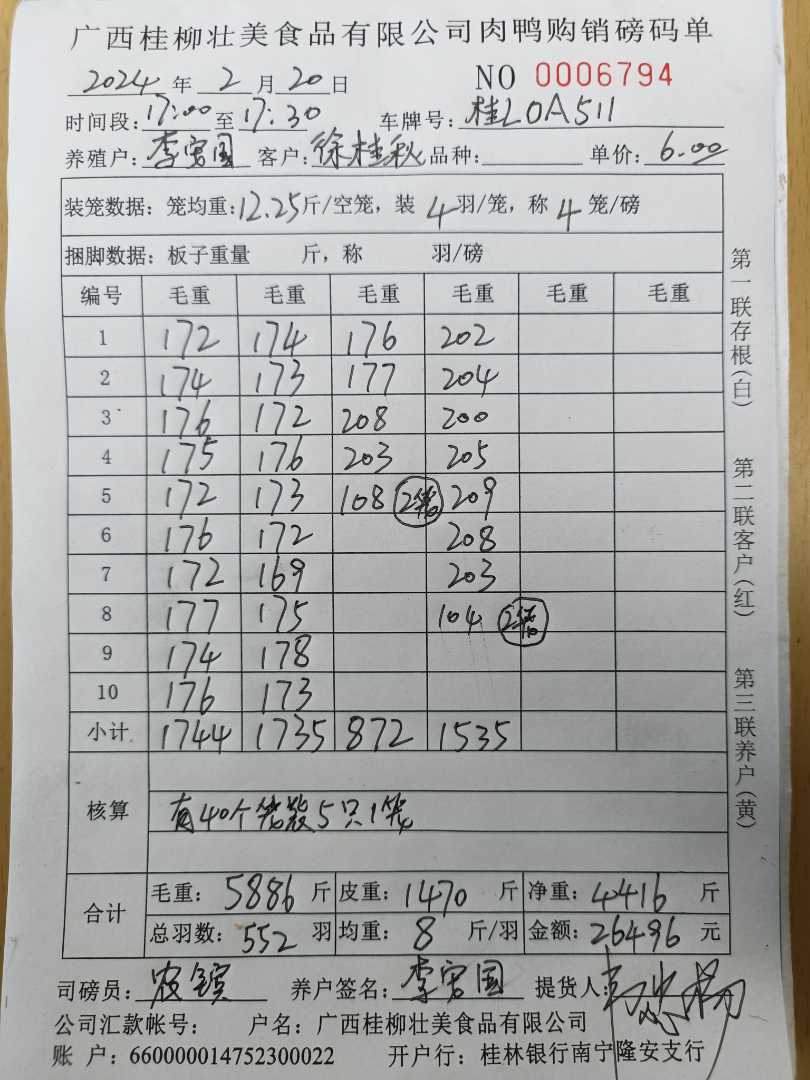 广西桂柳壮美食品有限公司肉鸭购销磅码单
2024 年 2 月 20 日 NO 0006794
时间段: 17:00 至 17:30 车牌号: 桂L0A511
养殖户: 李勇国 客户: 徐桂秋 品种: 单价: 6.00
装笼数据: 笼均重: 12.25 斤/空笼, 装 4 羽/笼, 称 4 笼/磅
捆脚数据: 板子重量 斤, 称 羽/磅
编号 毛重 毛重 毛重 毛重 毛重 毛重
1 172 174 176 202
2 174 173 177 204
3 176 172 208 200
4 175 176 203 205
5 172 173 108 2笼 209
6 176 172 208
7 172 169 203
8 177 175 104 2笼
9 174 178
10 176 173
小计 1744 1735 872 1535
核算
有40个笼装5只1笼
合计
毛重: 5886 斤 皮重: 1470 斤 净重: 4416 斤
总羽数: 552 羽 均重: 8 斤/羽 金额: 26496 元
司磅员: 农 养户签名: 李勇国 提货人:
公司汇款帐号: 户名: 广西桂柳壮美食品有限公司
账 户: 660000014752300022 开户行: 桂林银行南宁隆安支行
第一联存根(白)
第二联客户(红)
第三联养户(黄)